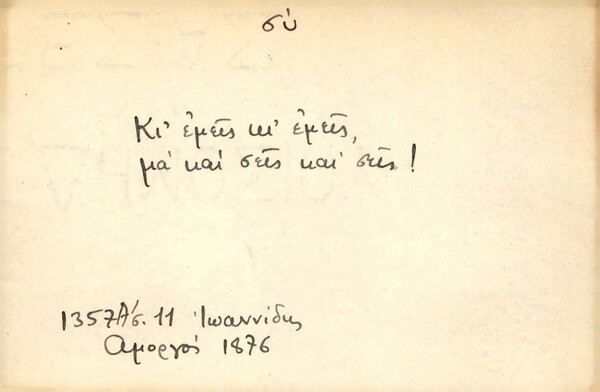 σύ
Κι' ἐμεῖς κι' ἐμεῖς,
μά καί σεῖς καί σεῖς!
1357Α', σ. 11 Ἰωαννίδης
Ἀμοργός 1876